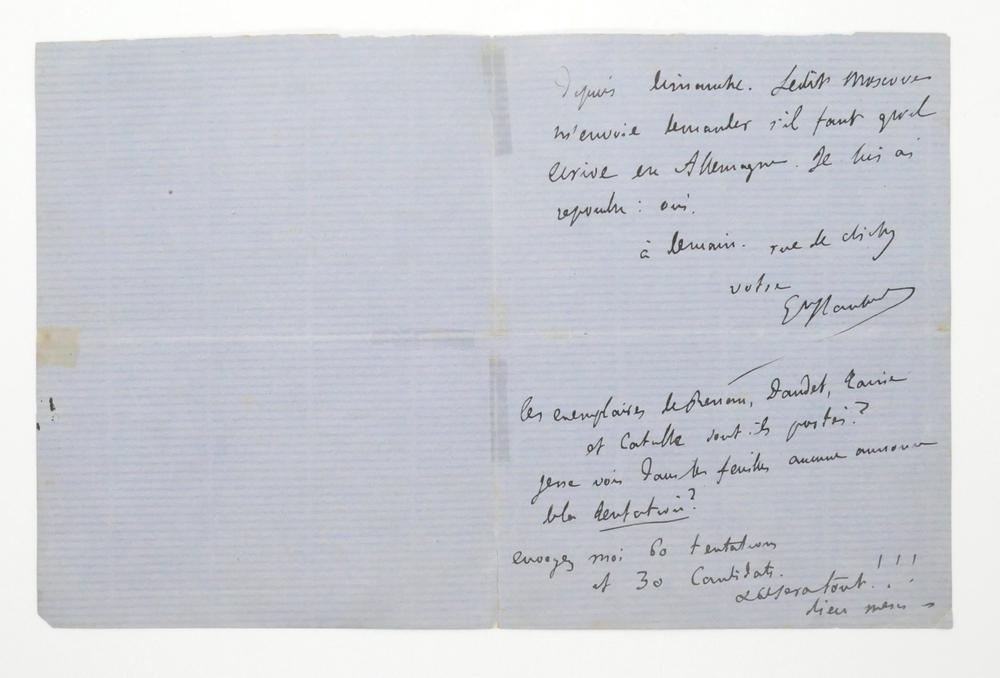 Depuis dimanche. Ledit Moscove
m'envoie demander s'il faut qu'il
écrive en Allemagne. Je lui ai
repondu : oui.
à demain. rue de clichy
votre
GveFlaubert
les exemplaires de Renan, Daudet, Taine
et Catulle sont-ils portés?
je ne vois dans les feuilles aucune annonce
de la tentation?
envoyez moi 60 tentations
et 30 Candidats.
& ce sera tout!!!
dieu merci